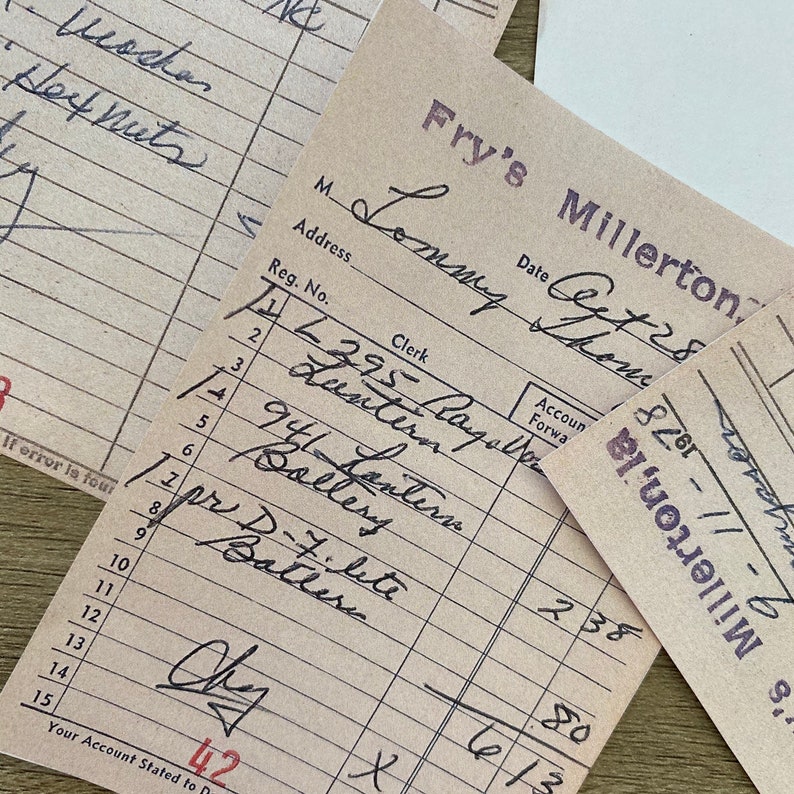 Washer
Hex Nuts
If error is foun
8
Fry's Millerton,
M. Tommy Thom
Address
Date Oct 28
Reg. No.
Clerk
Account
Forwa
1 1 L295 Rayo
2 Lantern
3
1 4 941 Lantern
5 Battery
6
1 7 pr D-F.lite
8 Batteries
9
10
11
12
13
14
15
2 38
.80
6 13
Chg
X
Your Account Stated to D
42
's Millerton,Ia
9 - 11 - 1978